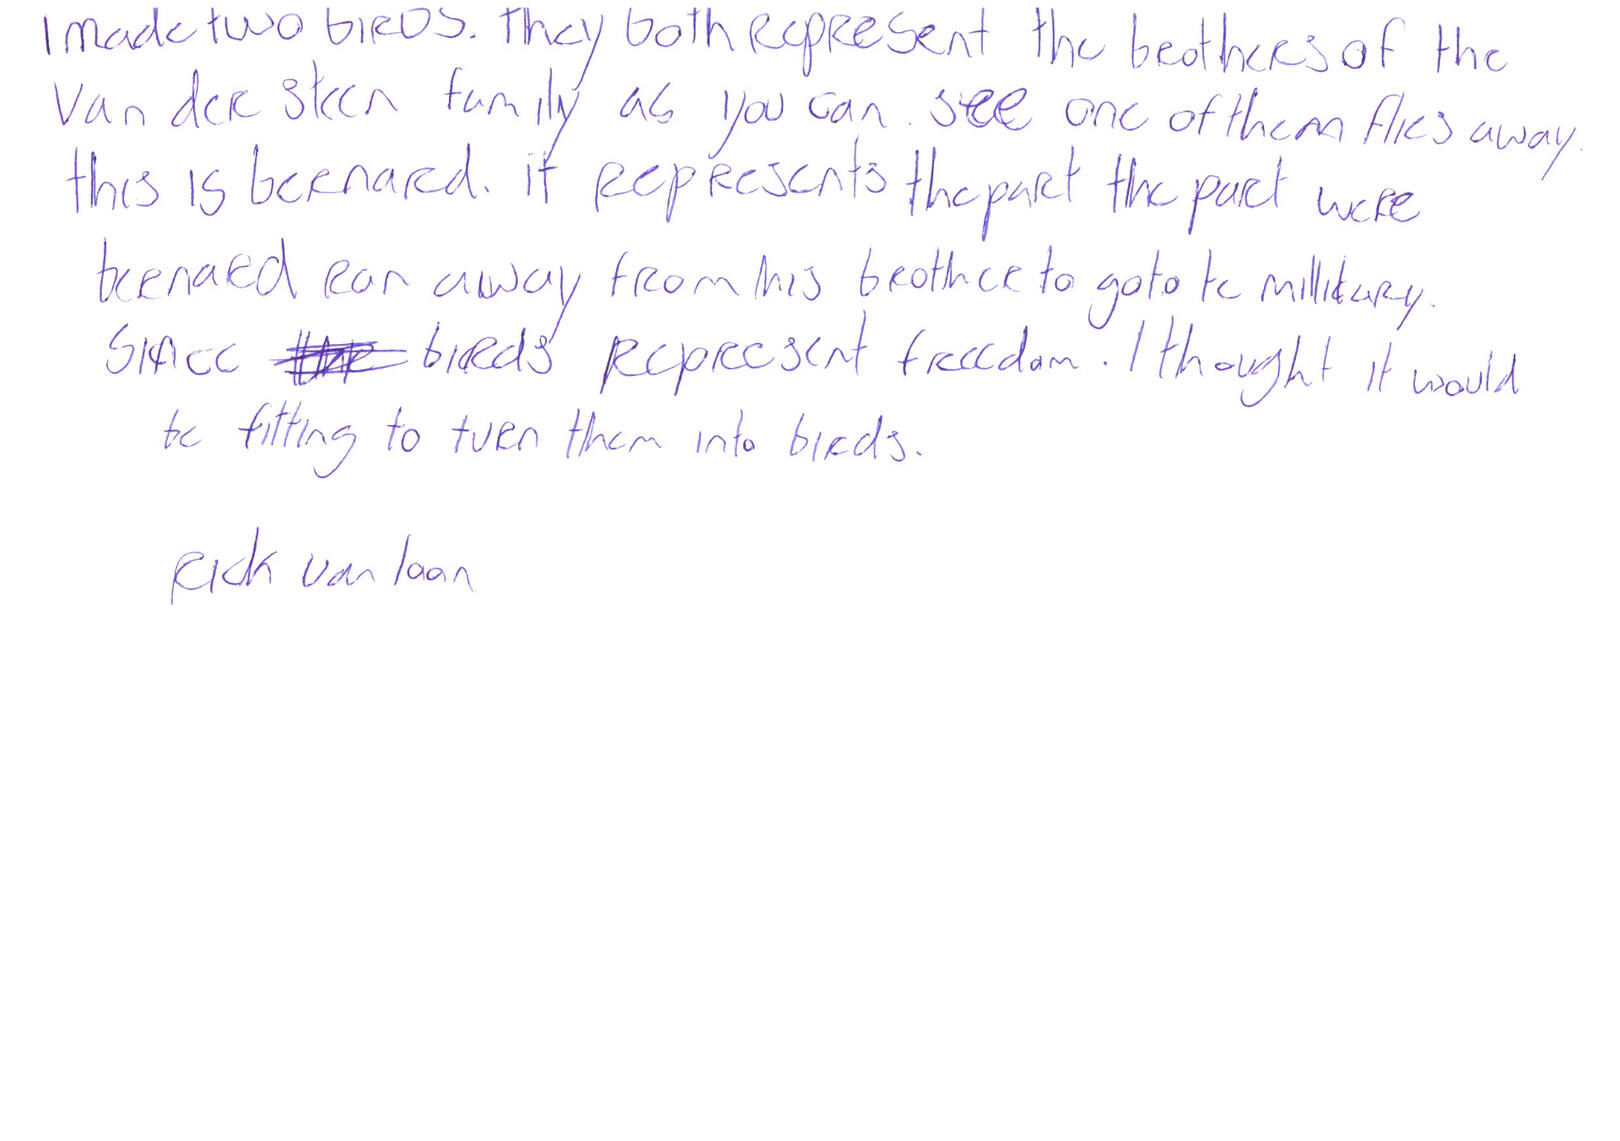 I made two birds. They both represent the brothers of the
Van der Steen family as you can see one of them flies away.
this is bernard. it represents the part the part were
bernard ran away from his brother to go to te millitary.
Since birds represent freedom. I thought it would
be fitting to turn them into birds.
Rick van laan